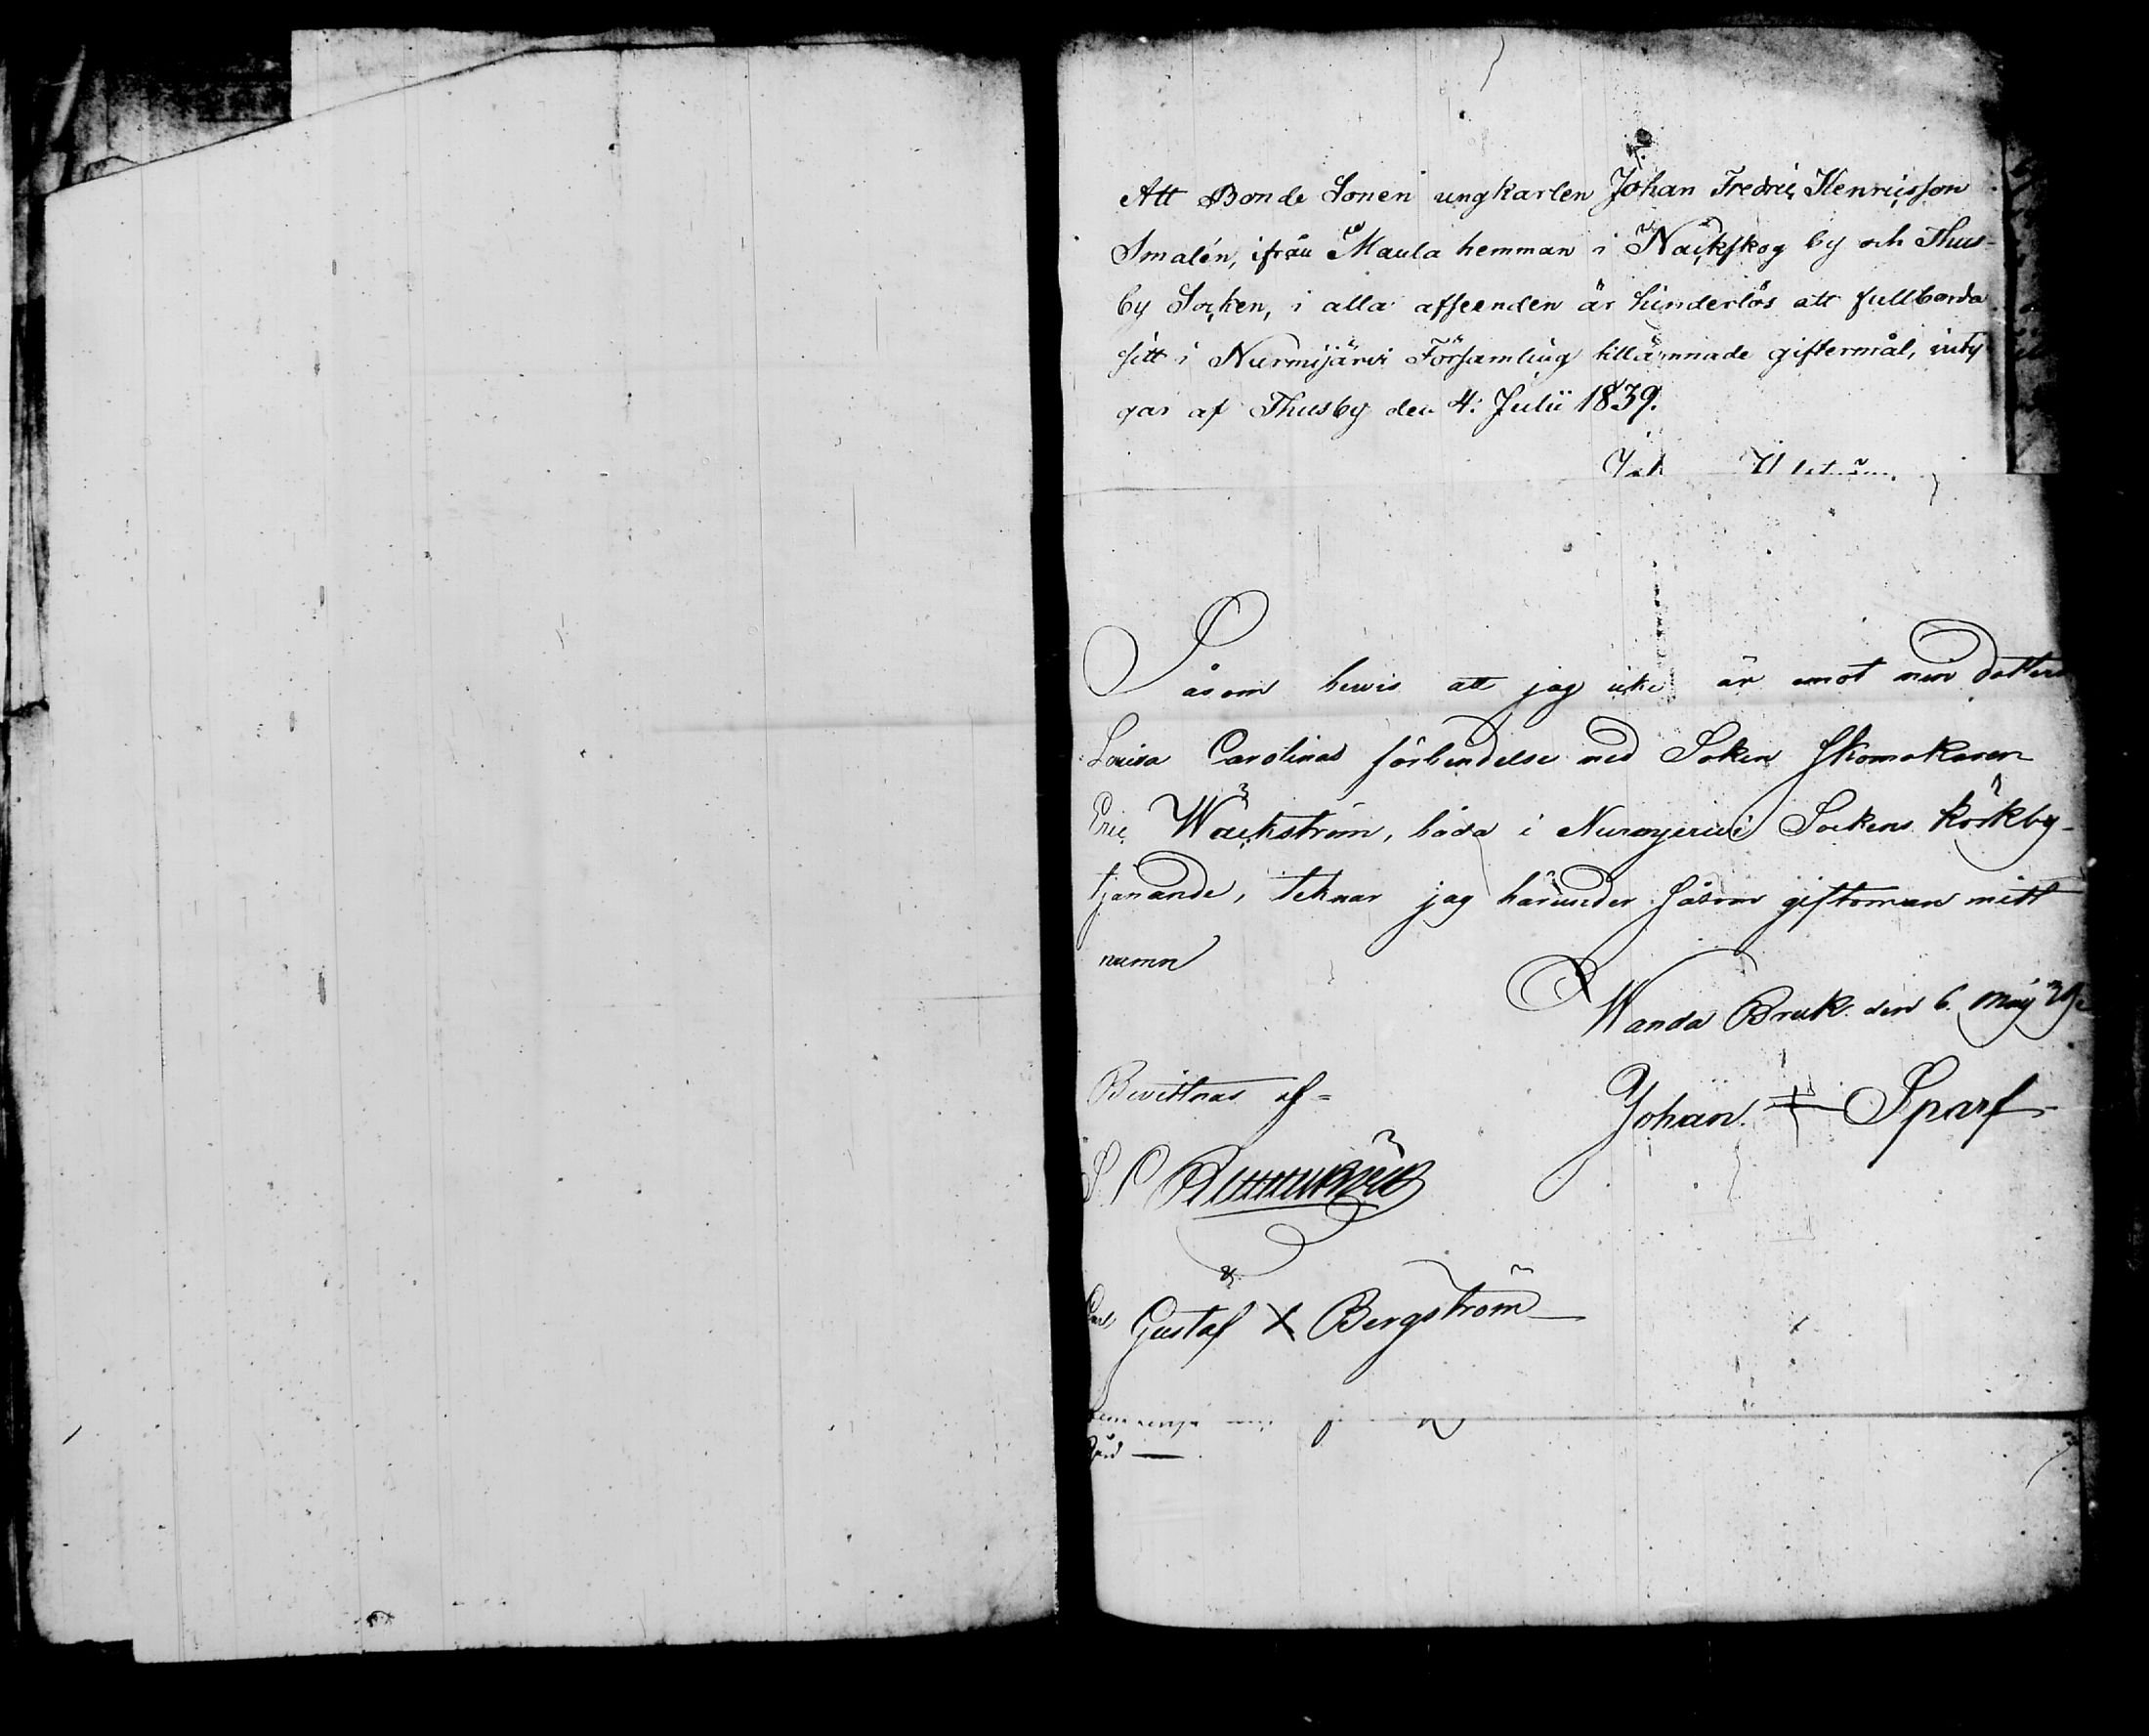 Att Bonde Sonen ungkarlen Johan Fredric Henricsson
Smalén, ifrån Maula hemman i Näckskog by och Thus-
by Socken, i alla afseenden är hinderlös att fullborda
sitt i Nurmijärvi Församling tillämnade giftermål, inty
gas af Thusby den 4. Julii 1839.
Såsom bewis att jag icke är emot min dotters
Lovisa Carolinas förbindelse med Soken Skomakaren
Eric Wäckström, båda i Nurmyerwi Sockens körkby-
tjenande, teknar jag härunder såsom giftoman mitt
namn
Wanda Bruk den 6. Maij 39
Johan + Sparf
Bevittnas af
Carl Gustaf X Bergström